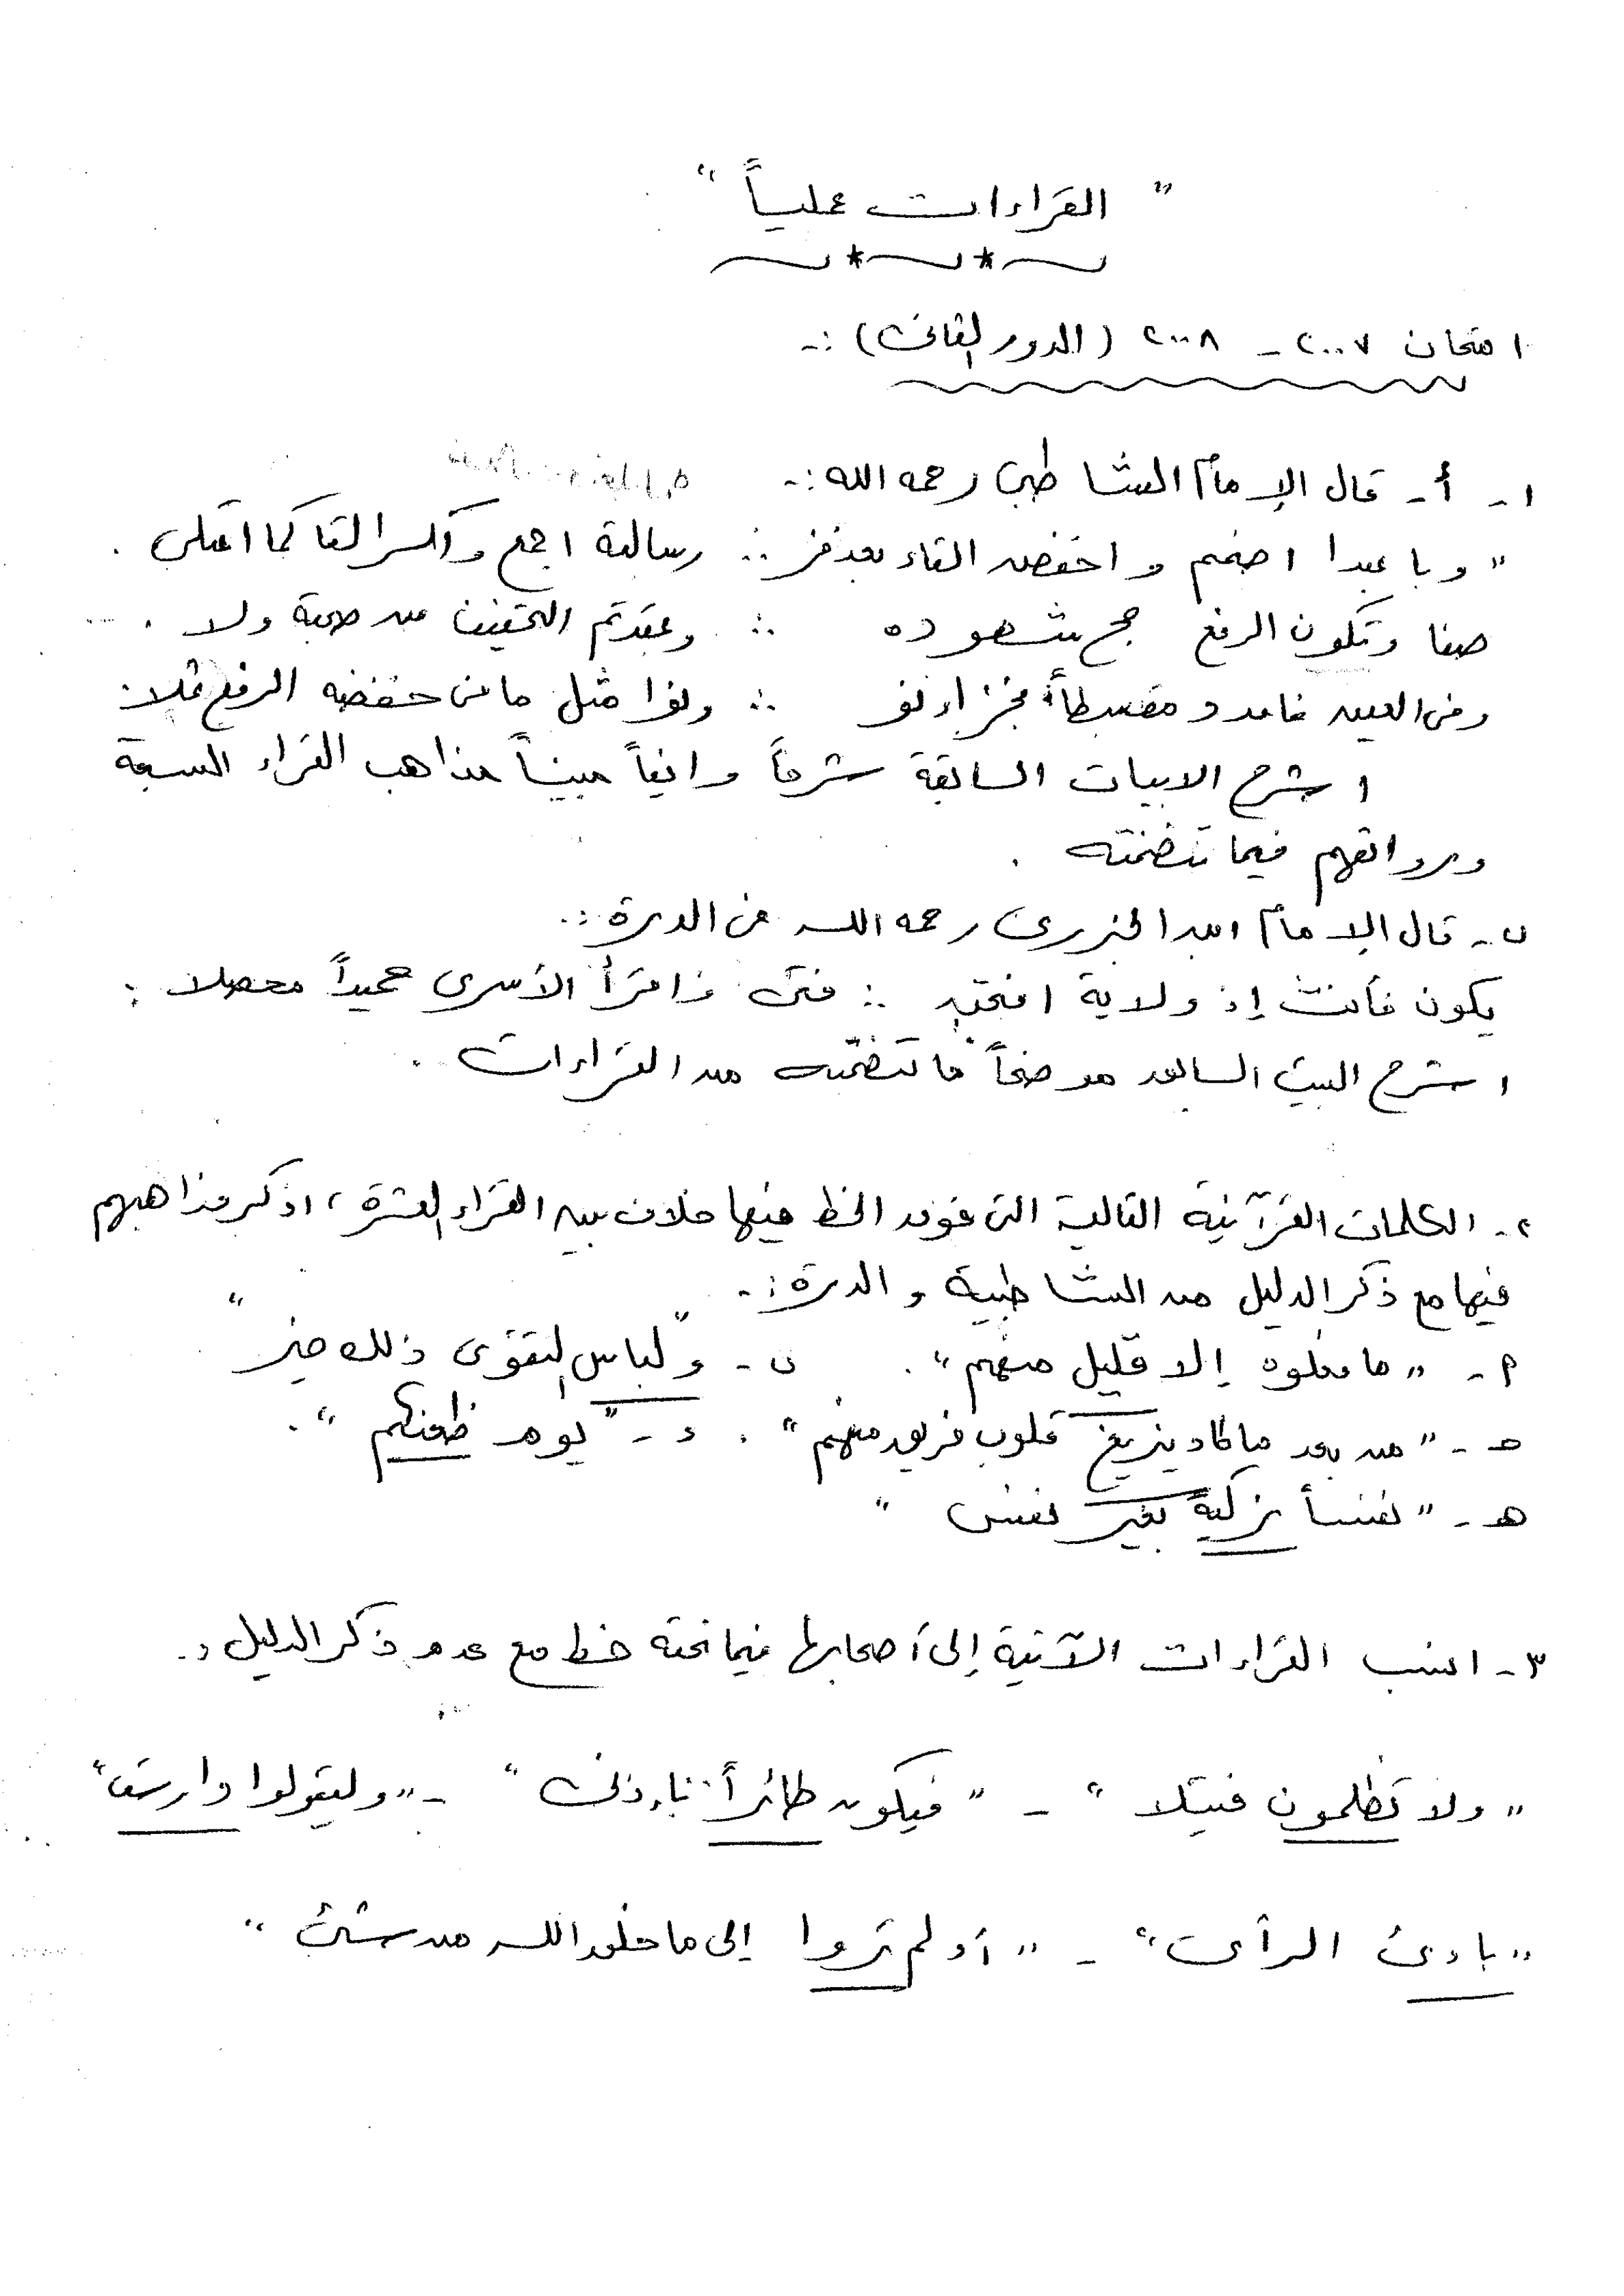 " القراءات عملياً "
امتحان ٢٠٠٧ - ٢٠٠٨ (الدور الثانى) :-
١- أ- قال الإمام الشاطبى رحمه الله :-
" وبا عبدا اضمم واخفض التاء بعد فز ∴ رسالته اجمع واكسر التا كما اعتلى .
صفا وتكون الرفع حج شهوده ∴ وعقدتم التخفيف من صحبة ولا .
وفى العين فامدد مقسطاً فجزاء نو ∴ ونوا مثل ما فى خفضه الرفع ثملا
اشرح الابيات السابقة شرحاً وافياً مبيناً مذاهب القراء السبعة
ورواتهم فيما تتضمنه .
ب- قال الإمام ابن الجزرى رحمه الله فى الدرة :.
يكون فأنث إذ ولاية افتحن ∴ فتى واقرأ الأسرى حميداً محصلا :
اشرح البيت السابق موضحاً ما تضمنه من القراءات .
٢- الكلمات القرآنية التالية التى فوق الخط فيها خلاف بين القراء العشرة ، اذكر مذاهبهم
فيها مع ذكر الدليل من الشاطبية والدرة :-
أ- " ما فعلوه إلا قليل منهم " . ب- " ولباس التقوى ذلك خير "
حـ- " من بعد ما كاد يزيغ قلوب فريق منهم " . د- " يوم ظعنكم " .
هـ- " نفساً زكية بغير نفس "
٣- انسب القراءات الآتية إلى أصحابها فيما تحته خط مع عدم ذكر الدليل :-
" ولا تظلمون فتيلا " - " فيكون طائراً بإذنى " - " وليقولوا دارست "
" بادئ الرأى " - " أولم تروا إلى ما خلق الله من شئ "